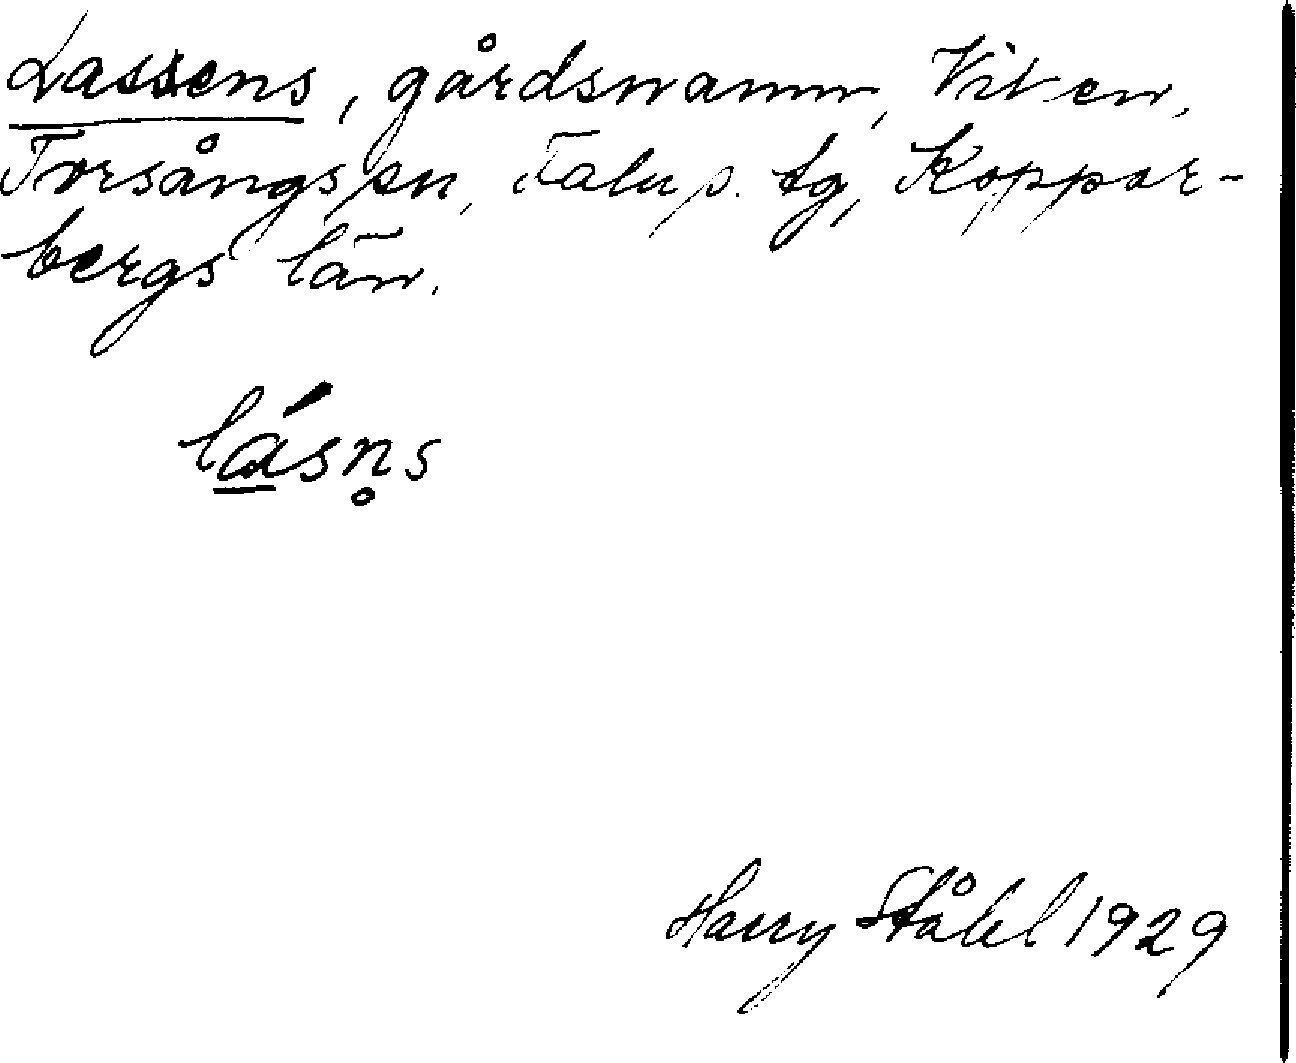 Lassens, gårdsnamn, Viken,
Torsångs sn, Falu s. tg, Koppar-
bergs län.
lásn̥s
Harry Ståhl 1929